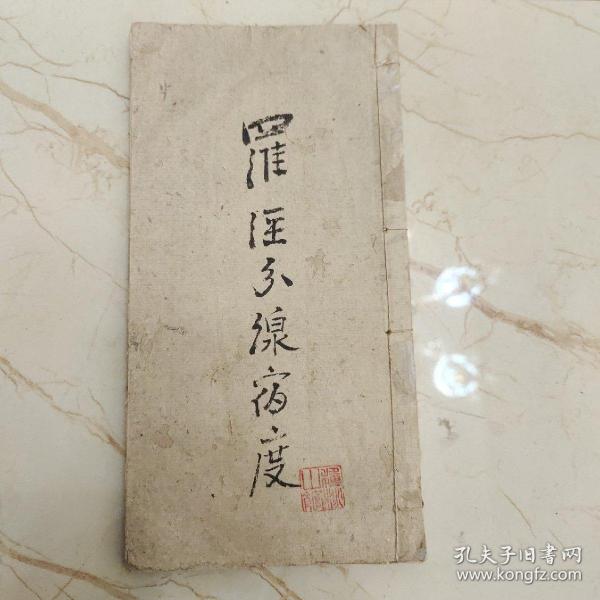 羅涇分線宿度
孔夫子旧書网
www.kongfz.com